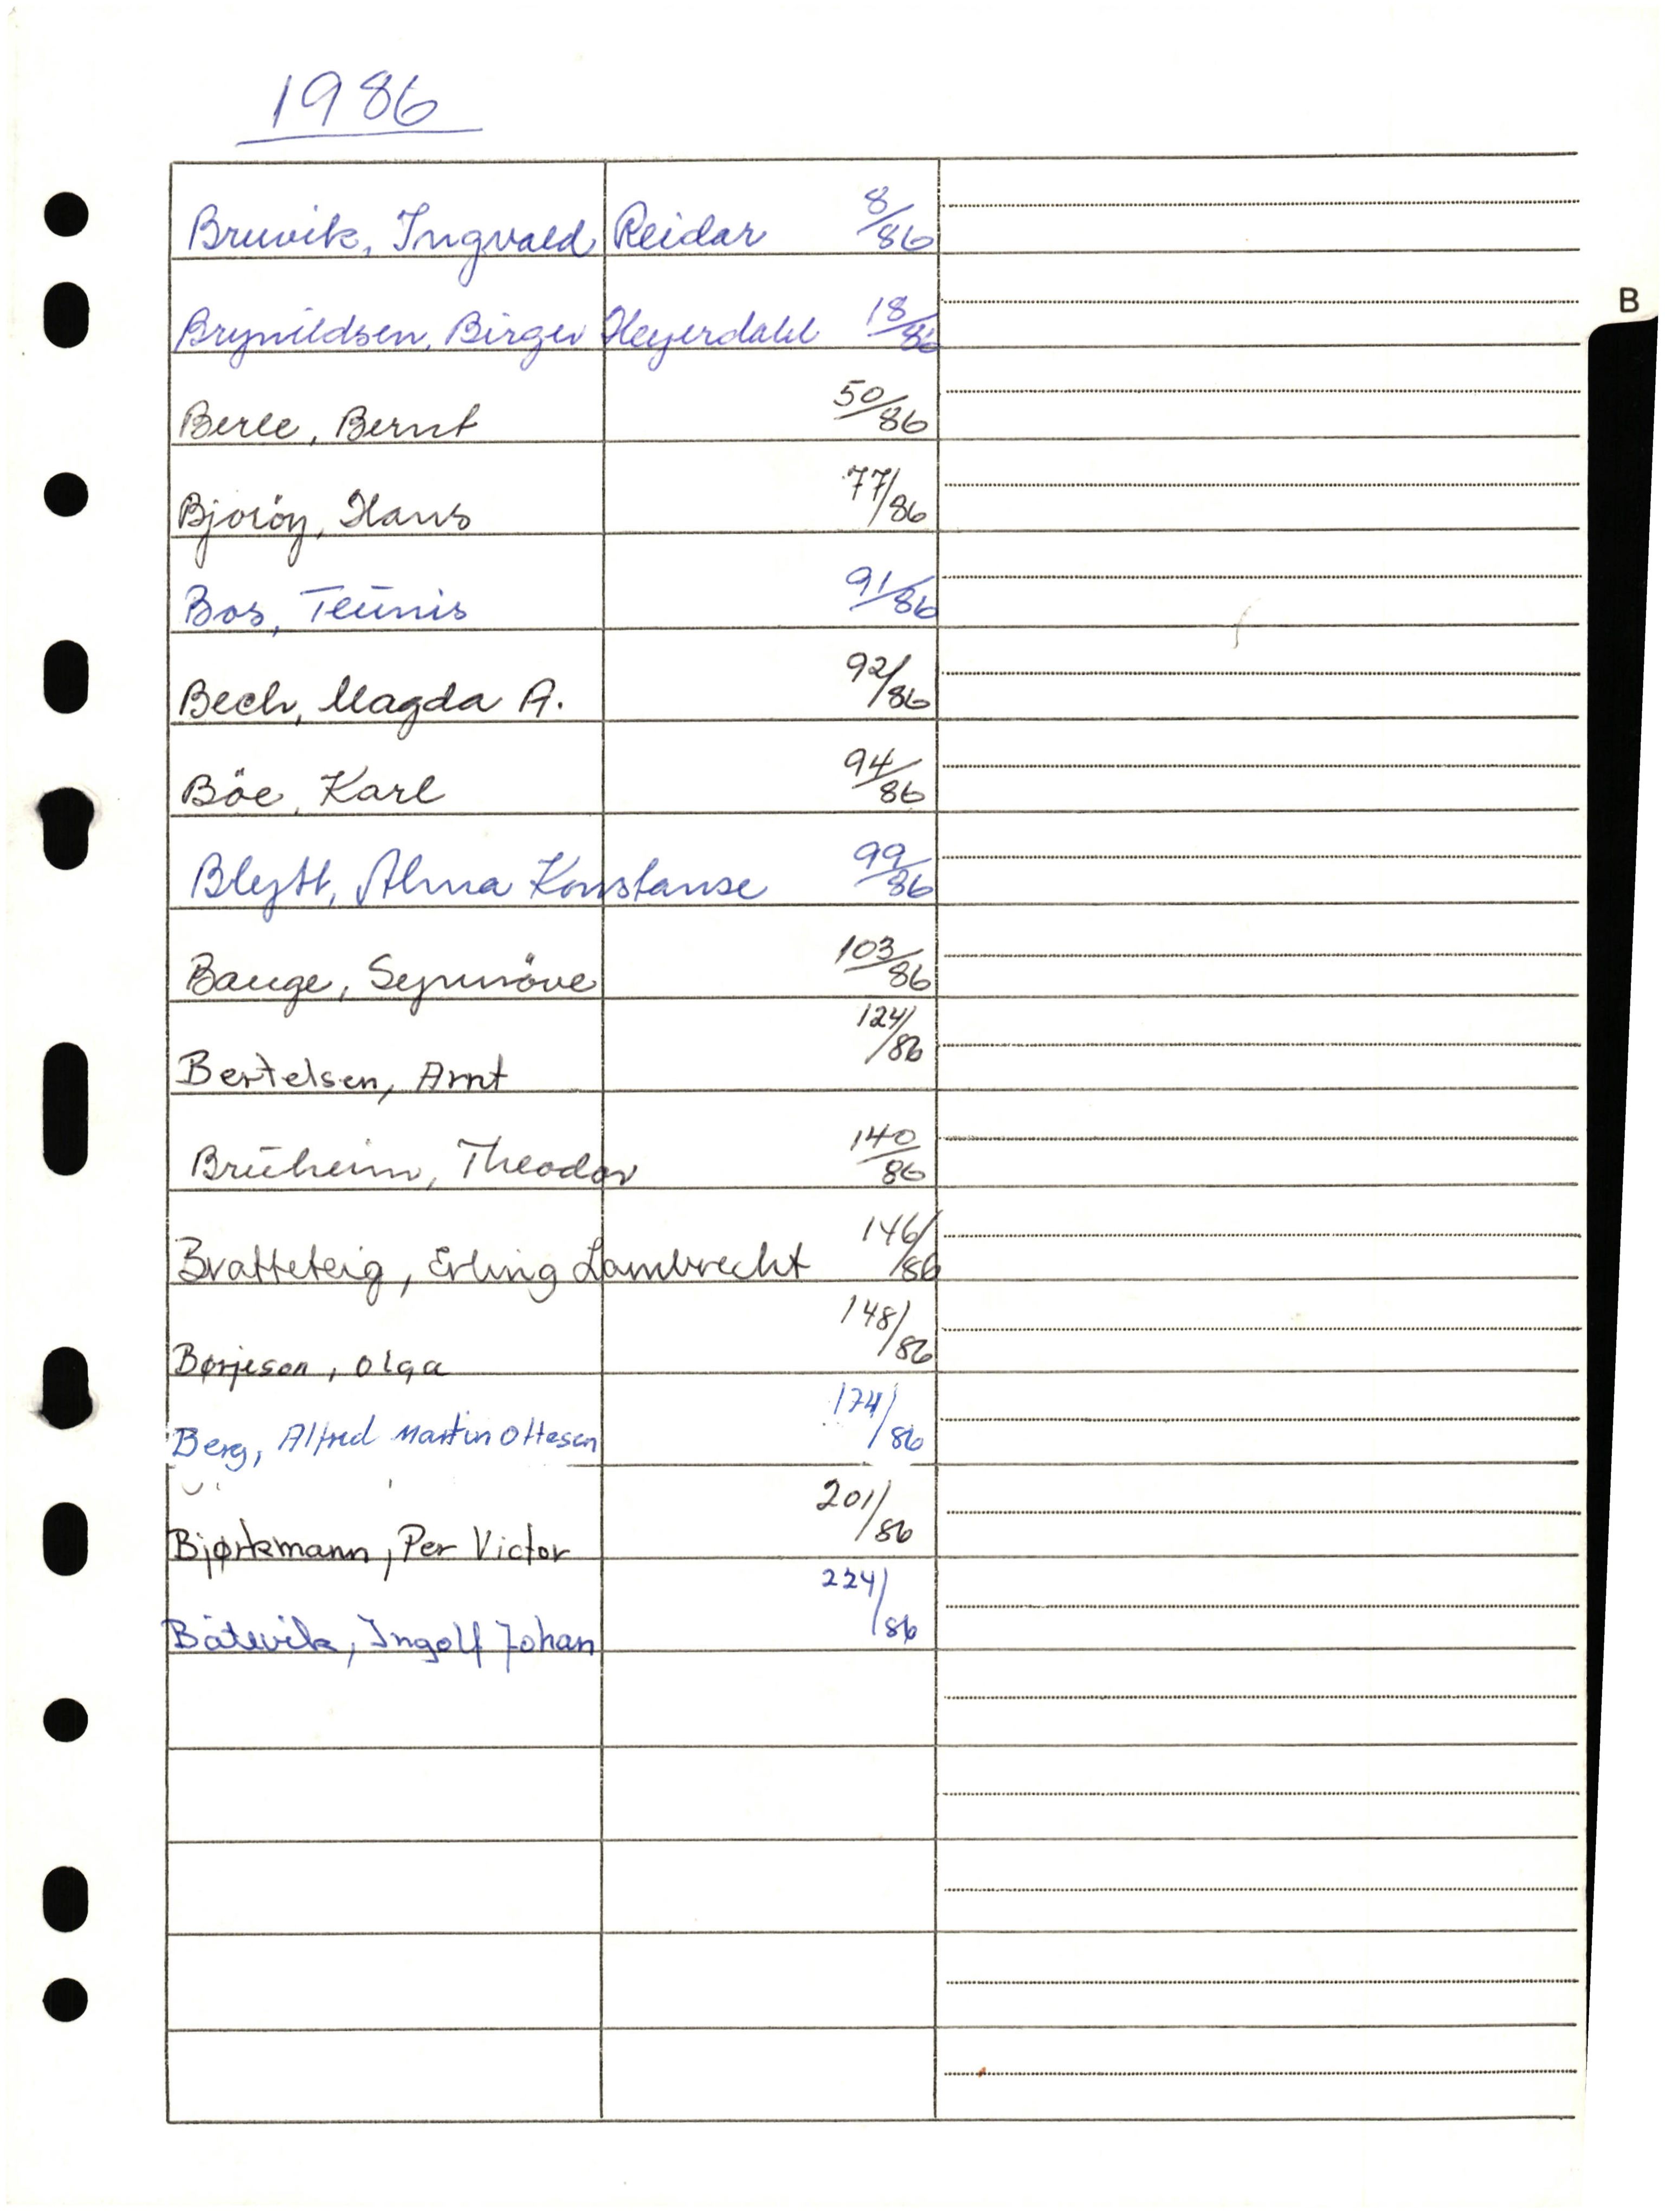 1986
Bruvik, Ingvald Reidar 8/86
B
Brynildsen, Birger Heyerdahl 18/86
Berle, Bernt 50/86
Bjoröy, Hans 77/86
Bos, Teunis 91/86
Bech, Magda A. 92/86
Böe, Karl 94/86
Blytt, Alma Konstanse 99/86
Bauge, Synnöve 103/86
Bertelsen, Arnt 124/86
Bruheim, Theodor 140/86
Bratteteig, Erling Lambrecht 146/86
Børjeson, Olga 148/86
Berg, Alfred Martin Ottesen 174/86
Bjørkmann, Per Victor 201/86
Båtevik, Ingolf Johan 224/86